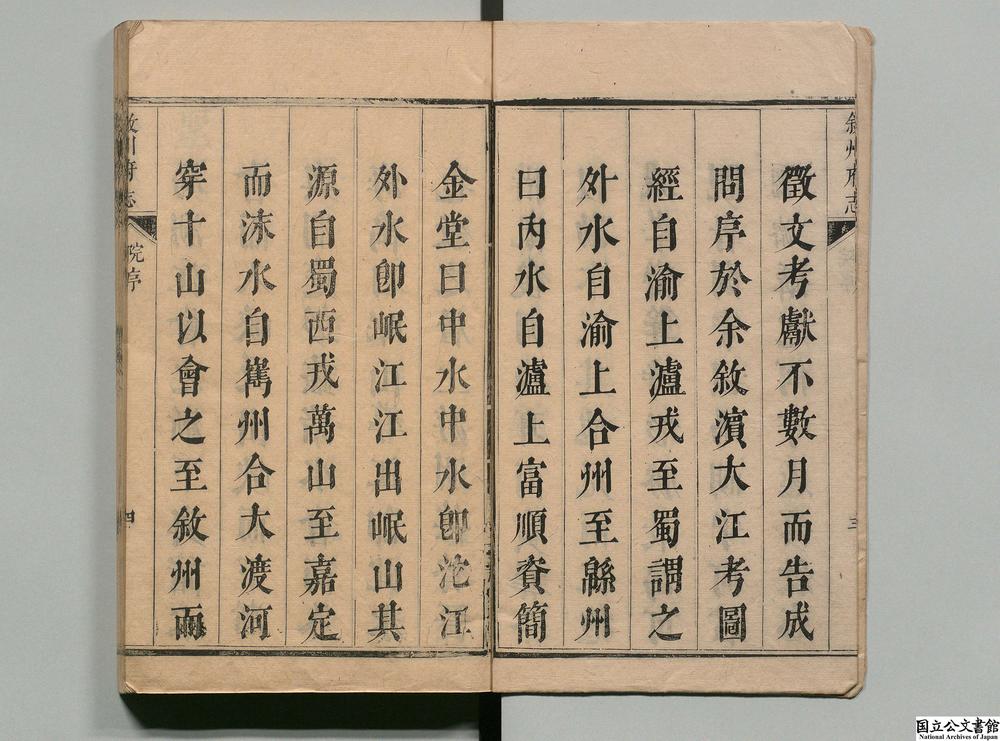 敘州府志
三
徵文考獻不數月而告成
問序於余敘濱大江考圖
經自渝上瀘戎至蜀謂之
外水自渝上合州至緜州
曰內水自瀘上富順資簡
金堂曰中水中水卽沱江
外水卽岷江江出岷山其
源自蜀西戎萬山至嘉定
而沫水自嶲州合大渡河
穿十山以會之至敘州而
敘州府志
院序
四
国立公文書館
National Archives of Japan